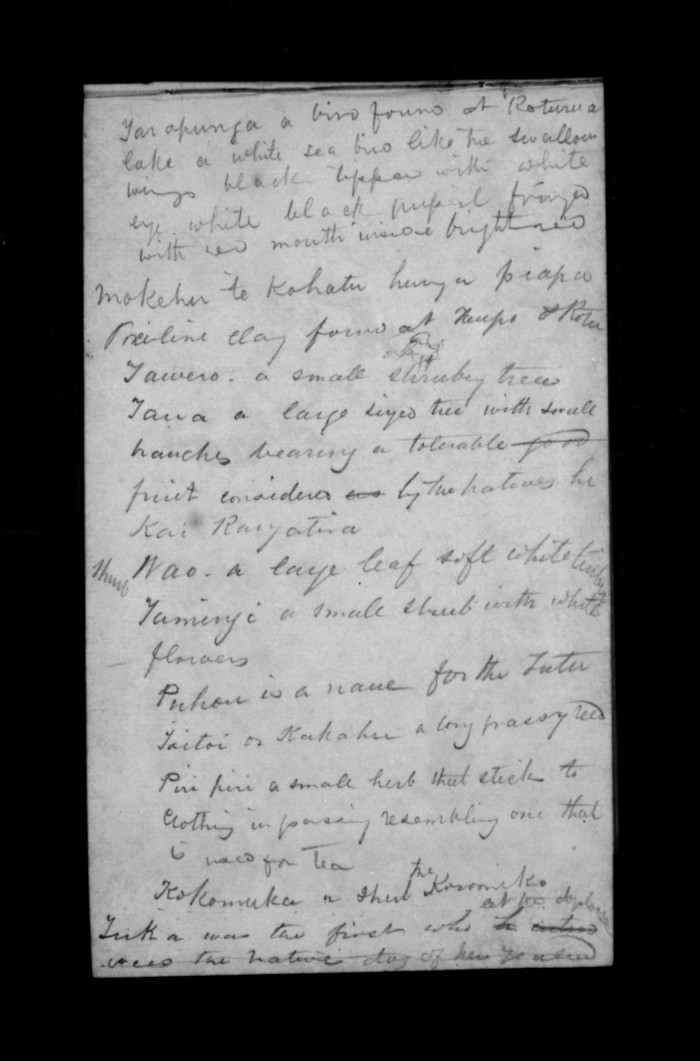 Tarapunga a bird found at Roturua
lake a white sea bird like the swallow
wings black tipped with white
eye white black pupil fringed
with red mouth inside bright red
Mokehu te Kohatu hunga piapa
clay found at Taupo & Rotu
Tawero. a small shrubby tree
Tawa a large sized tree with small
branches bearing a tolerable good
fruit considered as by the natives he
Kai Rangatira
Shrub Wao. a large leaf soft white
Taminga a small shrub with white
flowers
Puhou is a name for the Tutu
Toitoi or Kakahu a long grassy reed
Piri piri a small herb that stick to
Clothing in passing resembling one that
is used for Tea
Kokomuka a shrub the Koromiko
Tuka was the first who
was the native dog of New Zealand